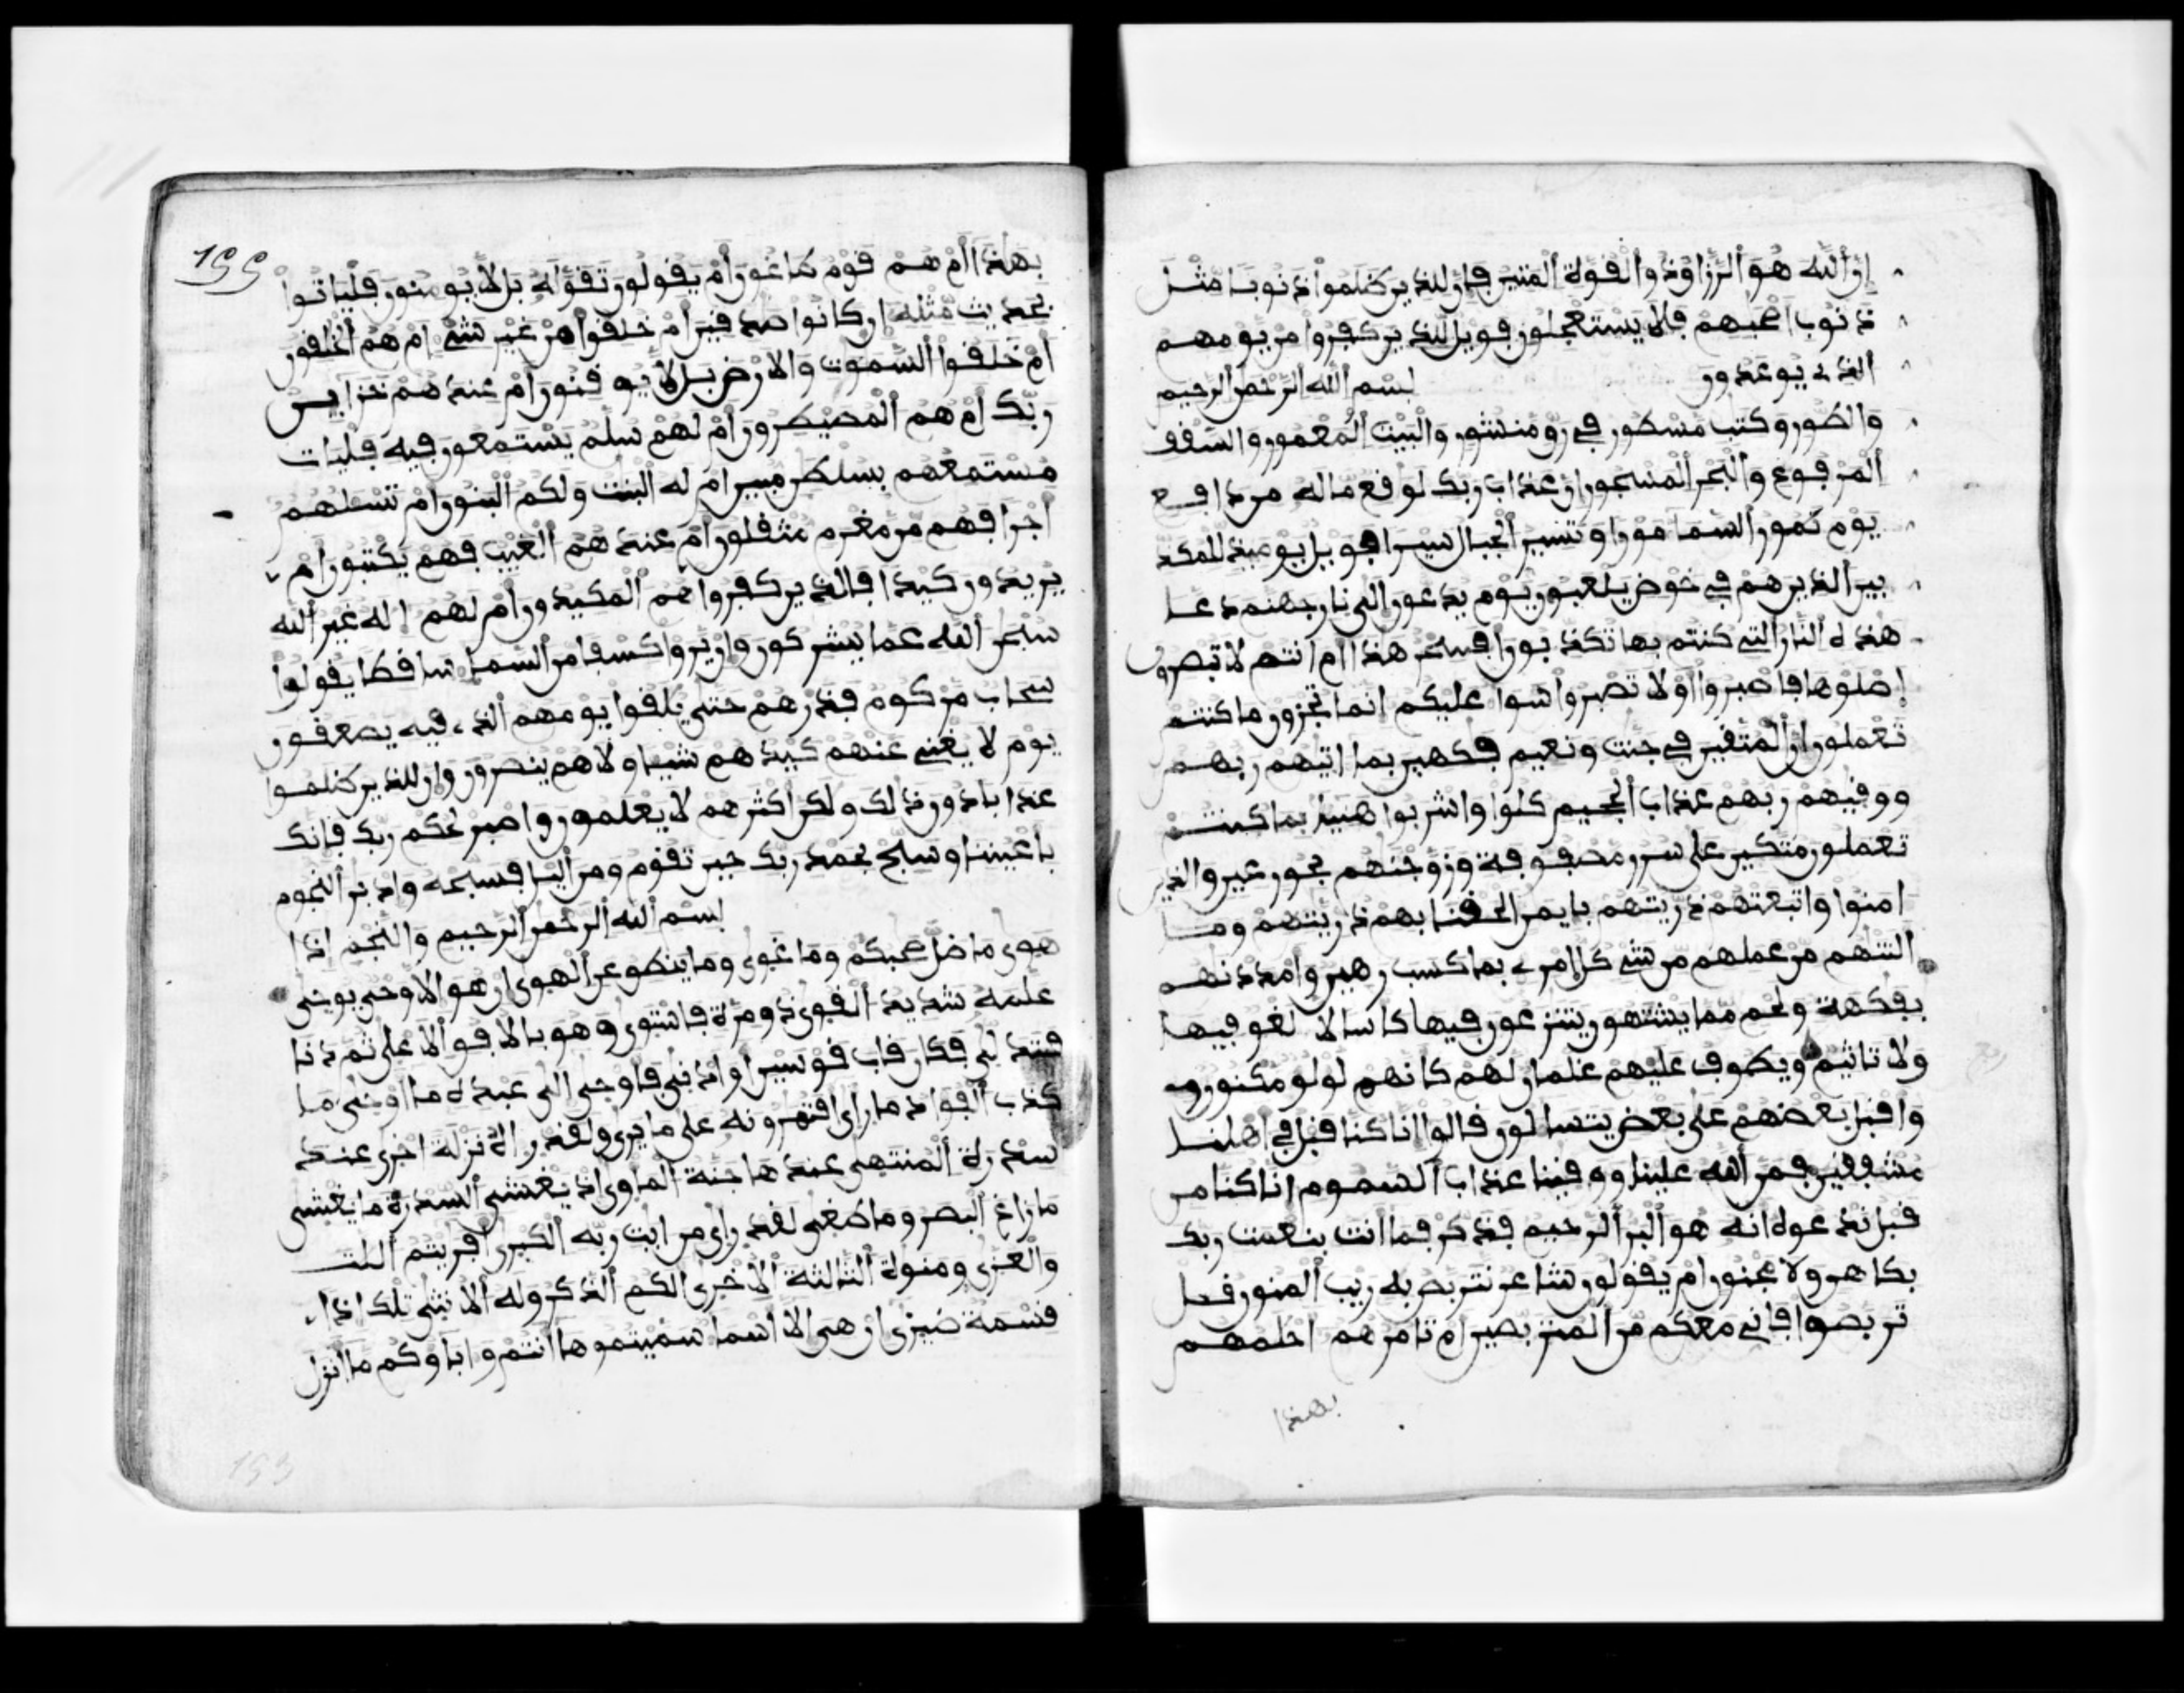 إن الله هو الرزاق ذو القوة المتين فإن للذين ظلموا ذنوبا مثل
ذنوب أصحبهم فلا يستعجلون فويل للذين كفروا من يومهم
الذي يوعدون بسم الله الرحمن الرحيم
والطور وكتب مسطور في رق منشور والبيت المعمور والسقف
المرفوع والبحر المسجور إن عذاب ربك لوقع ما له من دافع
يوم تمور السما مورا وتسير الجبال سيرا فويل يوميذ للمكذ
بين الذين هم في خوض يلعبون يوم يدعون إلى نار جهنم دعا
هذه النار التي كنتم بها تكذبون افسحر هذا ام انتم لا تبصرون
اصلوها فاصبروا أو لا تصبروا سوا عليكم انما تجزون ما كنتم
تعملون إن المتقين في جنت ونعيم فكهين بما اتيهم ربهم
ووقيهم ربهم عذاب الجحيم كلوا واشربوا هنيا بما كنتم
تعملون متكين على سرر مصفوفة وزوجنهم بحور عين والذين
امنوا واتبعتهم ذريتهم بايمن الحقنا بهم ذريتهم وما
التنهم من عملهم من شي كل امري بما كسب رهين وامددنهم
بفكهة ولحم مما يشتهون يتنزعون فيها كاسا لا لغو فيها
ولا تاثيم ويطوف عليهم غلمان لهم كانهم لولو مكنون
واقبل بعضهم على بعض يتسالون قالوا انا كنا قبل في اهلنا
مشفقين فمن الله علينا ووقينا عذاب السموم انا كنا من
قبل ندعوه انه هو البر الرحيم فذكر فما انت بنعمت ربك
بكاهن ولا مجنون ام يقولون شاعر نتربص به ريب المنون قل
تربصوا فاني معكم من المتربصين ام تامرهم احلمهم
بهذا
199
بهذا ام هم قوم طاغون أم يقولون تقوله بل لا يومنون فلياتوا
بحديث مثله ان كانوا صدقين ام خلقوا من غير شي ام هم الخلقون
ام خلقوا السموت والارض بل لا يوقنون ام عندهم خزاين
ربك ام هم المصيطرون ام لهم سلم يستمعون فيه فليات
مستمعهم بسلطن مبين ام له البنت ولكم البنون ام تسلهم
اجرا فهم من مغرم مثقلون ام عندهم الغيب فهم يكتبون ام
يريدون كيدا فالذين كفروا هم المكيدون ام لهم اله غير الله
سبحن الله عما يشركون وان يروا كسفا من السما ساقطا يقولوا
سحاب مركوم فذرهم حتى يلقوا يومهم الذي فيه يصعقون
يوم لا يغني عنهم كيدهم شيا ولا هم ينصرون وان للذين ظلموا
عذابا دون ذلك ولكن اكثرهم لا يعلمون واصبر لحكم ربك فانك
باعيننا وسبح بحمد ربك حين تقوم ومن اليل فسبحه وادبر النجوم
بسم الله الرحمن الرحيم والنجم اذا
هوى ما ضل صحبكم وما غوى وما ينطق عن الهوى ان هو الا وحي يوحى
علمه شديد القوى ذو مرة فاستوى وهو بالافق الاعلى ثم دنا
فتدلى فكان قاب قوسين او ادنى فاوحى الى عبده ما اوحى ما
كذب الفواد ما راى افتمرونه على ما يرى ولقد راه نزلة اخرى عند
سدرة المنتهى عندها جنة الماوى اذ يغشى السدرة ما يغشى
ما زاغ البصر وما طغى لقد راى من ايت ربه الكبرى افريتم اللت
والعزى ومنوة الثالثة الاخرى الكم الذكر وله الانثى تلك اذا
قسمة ضيزى ان هي الا اسما سميتموها انتم واباوكم ما انزل
193